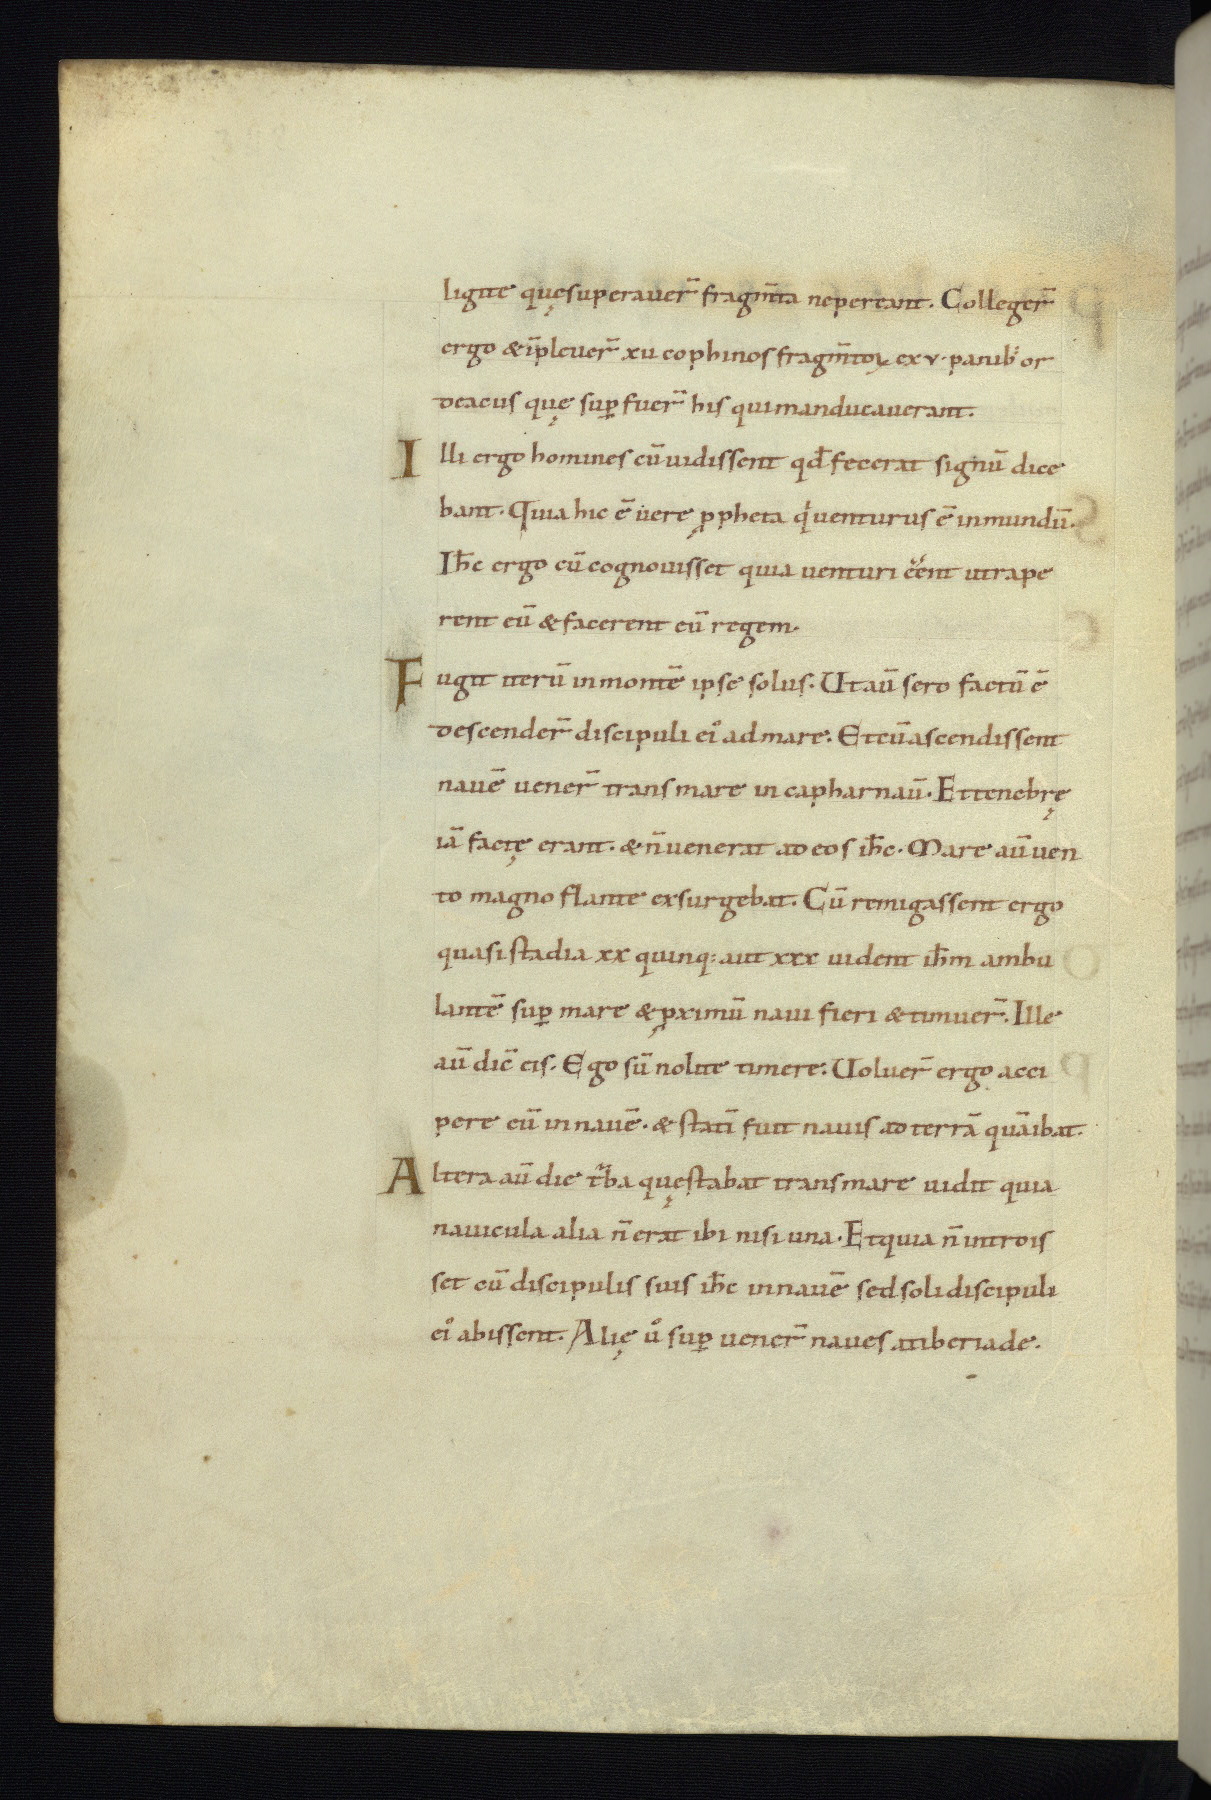 ligite quęsuperauer̄ fragm̄ta nepereant. Colleger̄
ergo &īpleuer̄ xii cophinos fragm̄toꝝ ex v· panib; or
deaceis quę suꝑfuer̄ his quimanducauerant.
Illi ergo homines cū uidissent qd̄ fecerat signū dice
bant. Quia hic ē uere ꝓpheta qi uenturus ē inmundū.
Ih̄c ergo cū cognouisset quia uenturi eēnt utrape
rent eū & facerent eū regem.
Fugit iterū inmontē ipse solus. Ut aū sero factū ē
descender̄ discipuli eiꝰ admare. Etcū ascendissent
nauē uener̄ trans mare in capharnaū. Et tenebrę
iā factę erant. & n̄ uenerat ad eos ih̄c. Mare aū uen
to magno flante exsurgebat. Cū remigassent ergo
quasi stadia xx quinq; aut xxx uident ih̄m ambu
lantē suꝑ mare & ꝓximū naui fieri & timuer̄. Ille
aū dic̄ eis. Ego sū nolite timere. Uoluer̄ ergo acci
pere eū innauē. & statī fuit nauis ad terrā quā ibat.
Altera aū die tr̄ba quęstabat trans mare uidit quia
nauicula alia n̄ erat ibi nisi una. Et quia n̄ introis
set cū discipulis suis ih̄c innauē sed soli discipuli
eiꝰ abissent. Alię uͦ suꝑ uener̄ naues atiberiade.